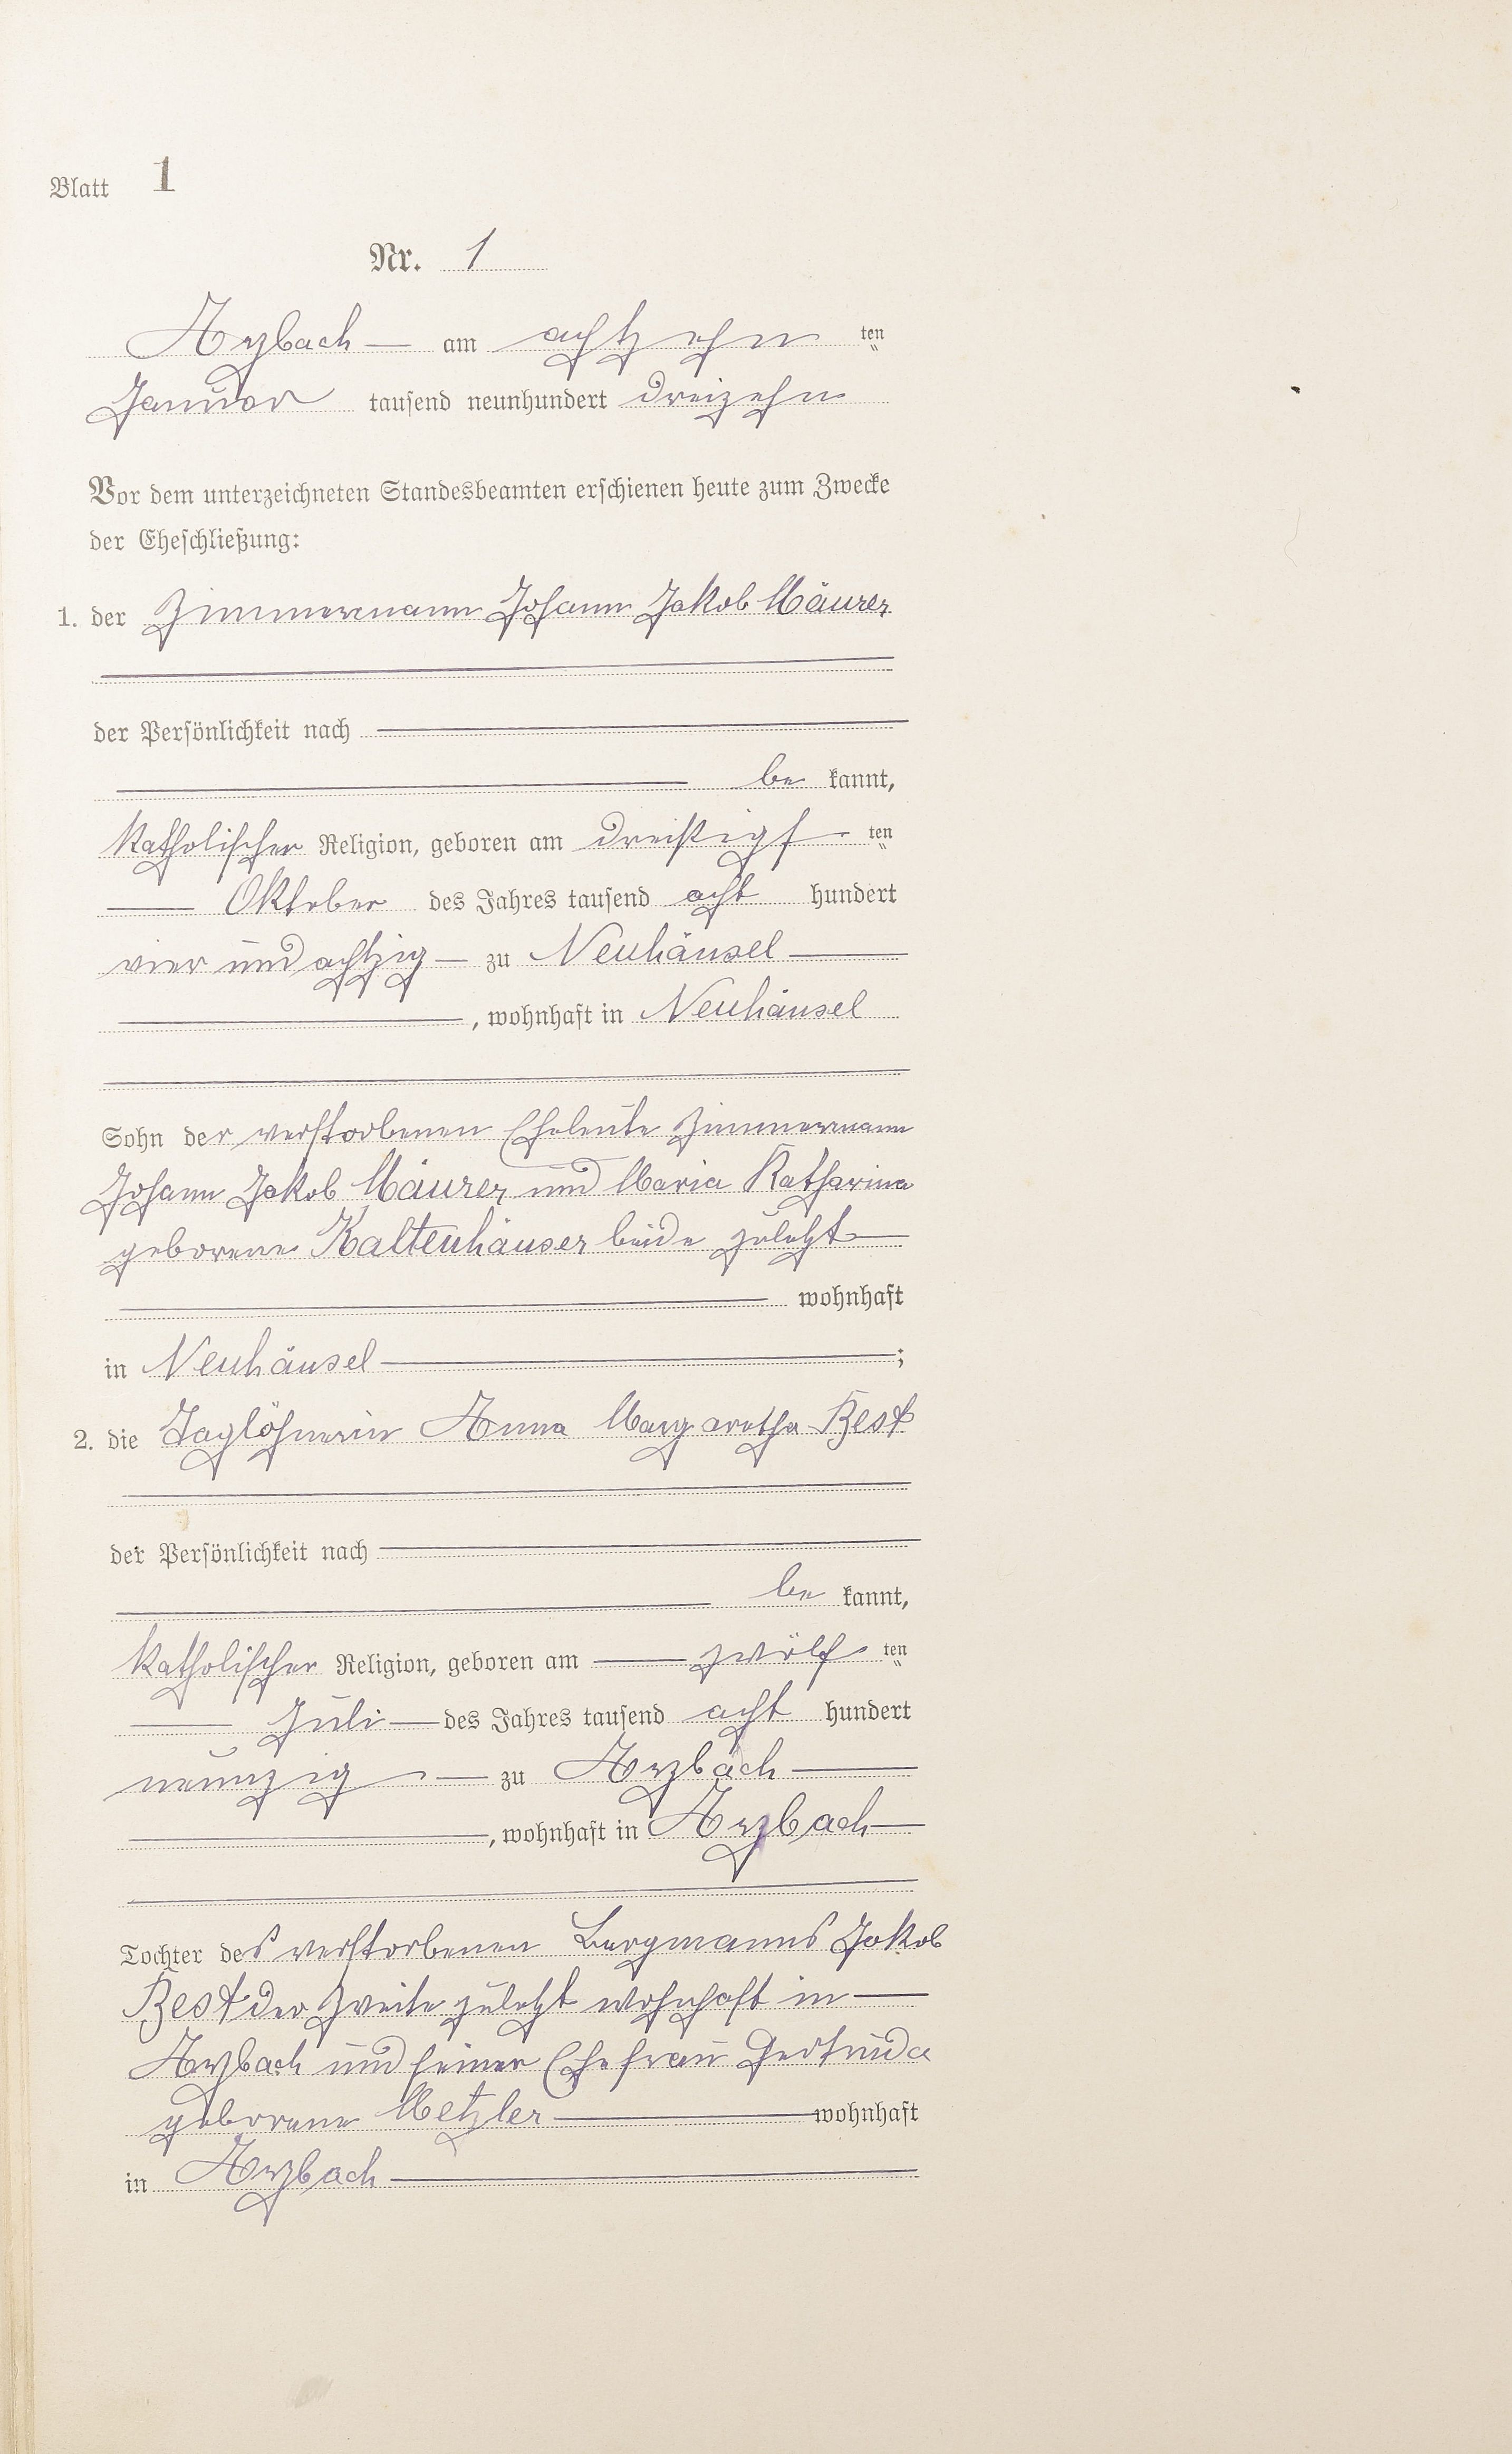 Blatt 1
Nr. 1
Arzbach am achtzehn ten
Januar tausend neunhundert dreizehn
Vor dem unterzeichneten Standesbeamten erschienen heute zum Zwecke
der Eheschließung:
1. der Zimmermann Johann Jakob Mäurer
der Persönlichkeit nach
be kannt,
katholischer Religion, geboren am dreißigs ten
Oktober des Jahres tausend acht hundert
vier und achtzig zu Neuhäusel
, wohnhaft in Neuhäusel
Sohn der verstorbenen Eheleute Zimmermann
Johann Jakob Mäurer und Maria Katharina
geborene Kaltenhäuser beide zuletzt
wohnhaft
in Neuhäusel ;
2. die Taglöhnerin Anna Margaretha Best
der Persönlichkeit nach
be kannt,
katholischer Religion, geboren am zwölf ten
Juli des Jahres tausend acht hundert
neunzig zu Arzbach
, wohnhaft in Arzbach
Tochter des verstorbenen Bergmanns Jakob
Best der Zweite zuletzt wohnhaft in
Arzbach und seiner Ehefrau Gertruda
geborene Metzler wohnhaft
in Arzbach